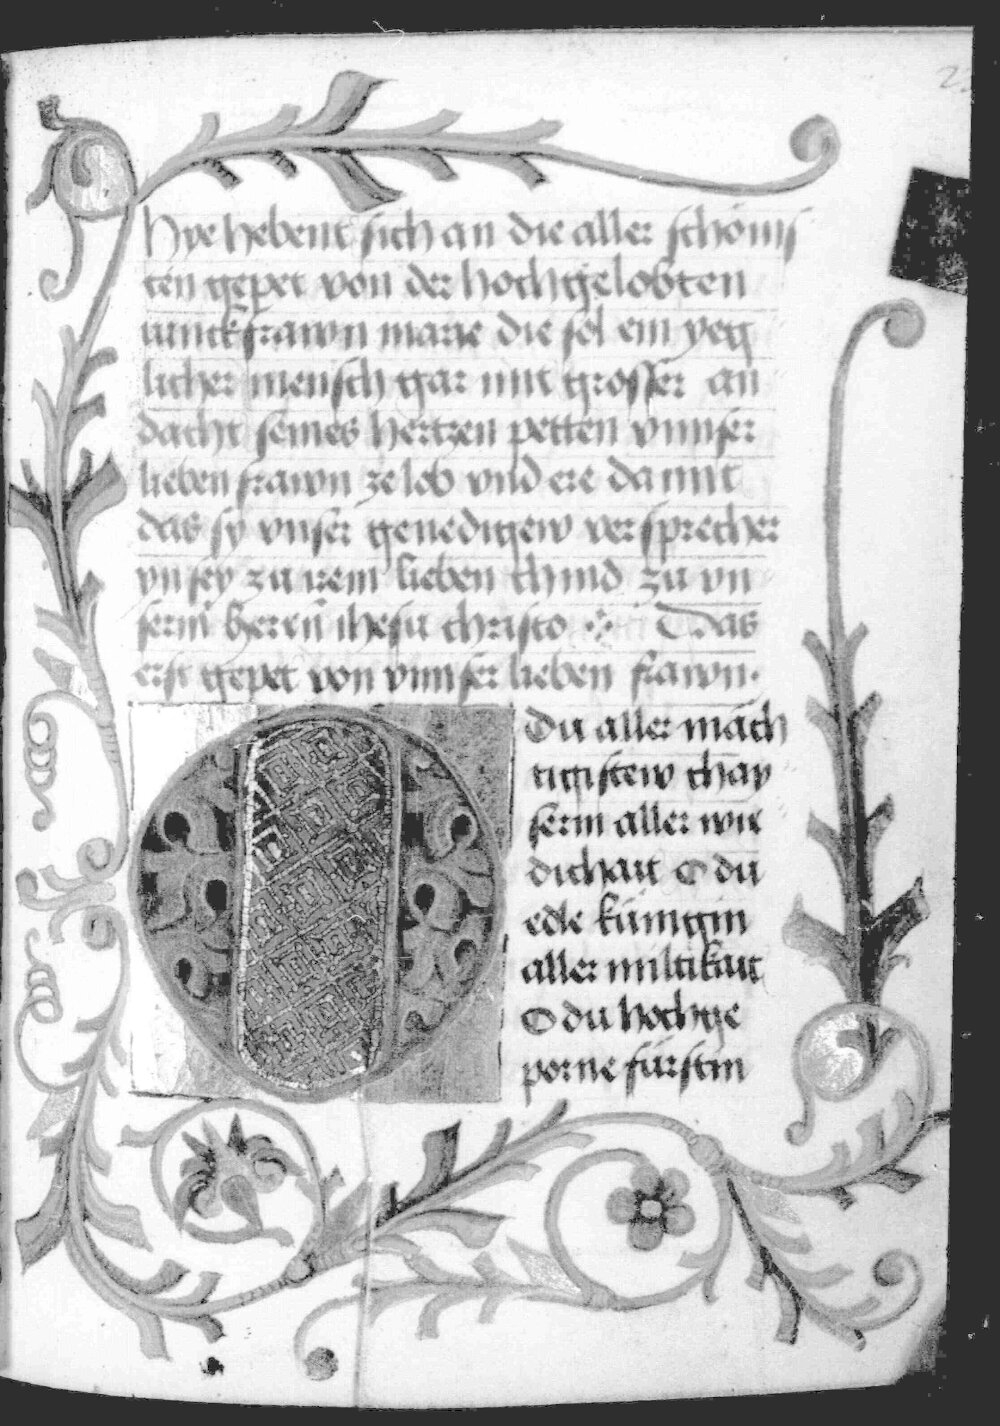 Hye hebent sich an die aller schönis
ten gepet von der hochgelobten
iunckfrawn marie die sol ein yeg
licher mensch gar mit grosser an
dacht seines hertzen petten vnnser
lieben frawn ze lob vnd ere da mit
das sy vnser genedigew versprecher
yn sey zu irem lieben chind zu vn
serm herrn ihesu christo Das
erst gepet von vnnser lieben frawn.
O Du aller mäch
tigistew chay
serin aller wir
dichait O du
edle künigin
aller miltikait
O du hochge
porne fürstin